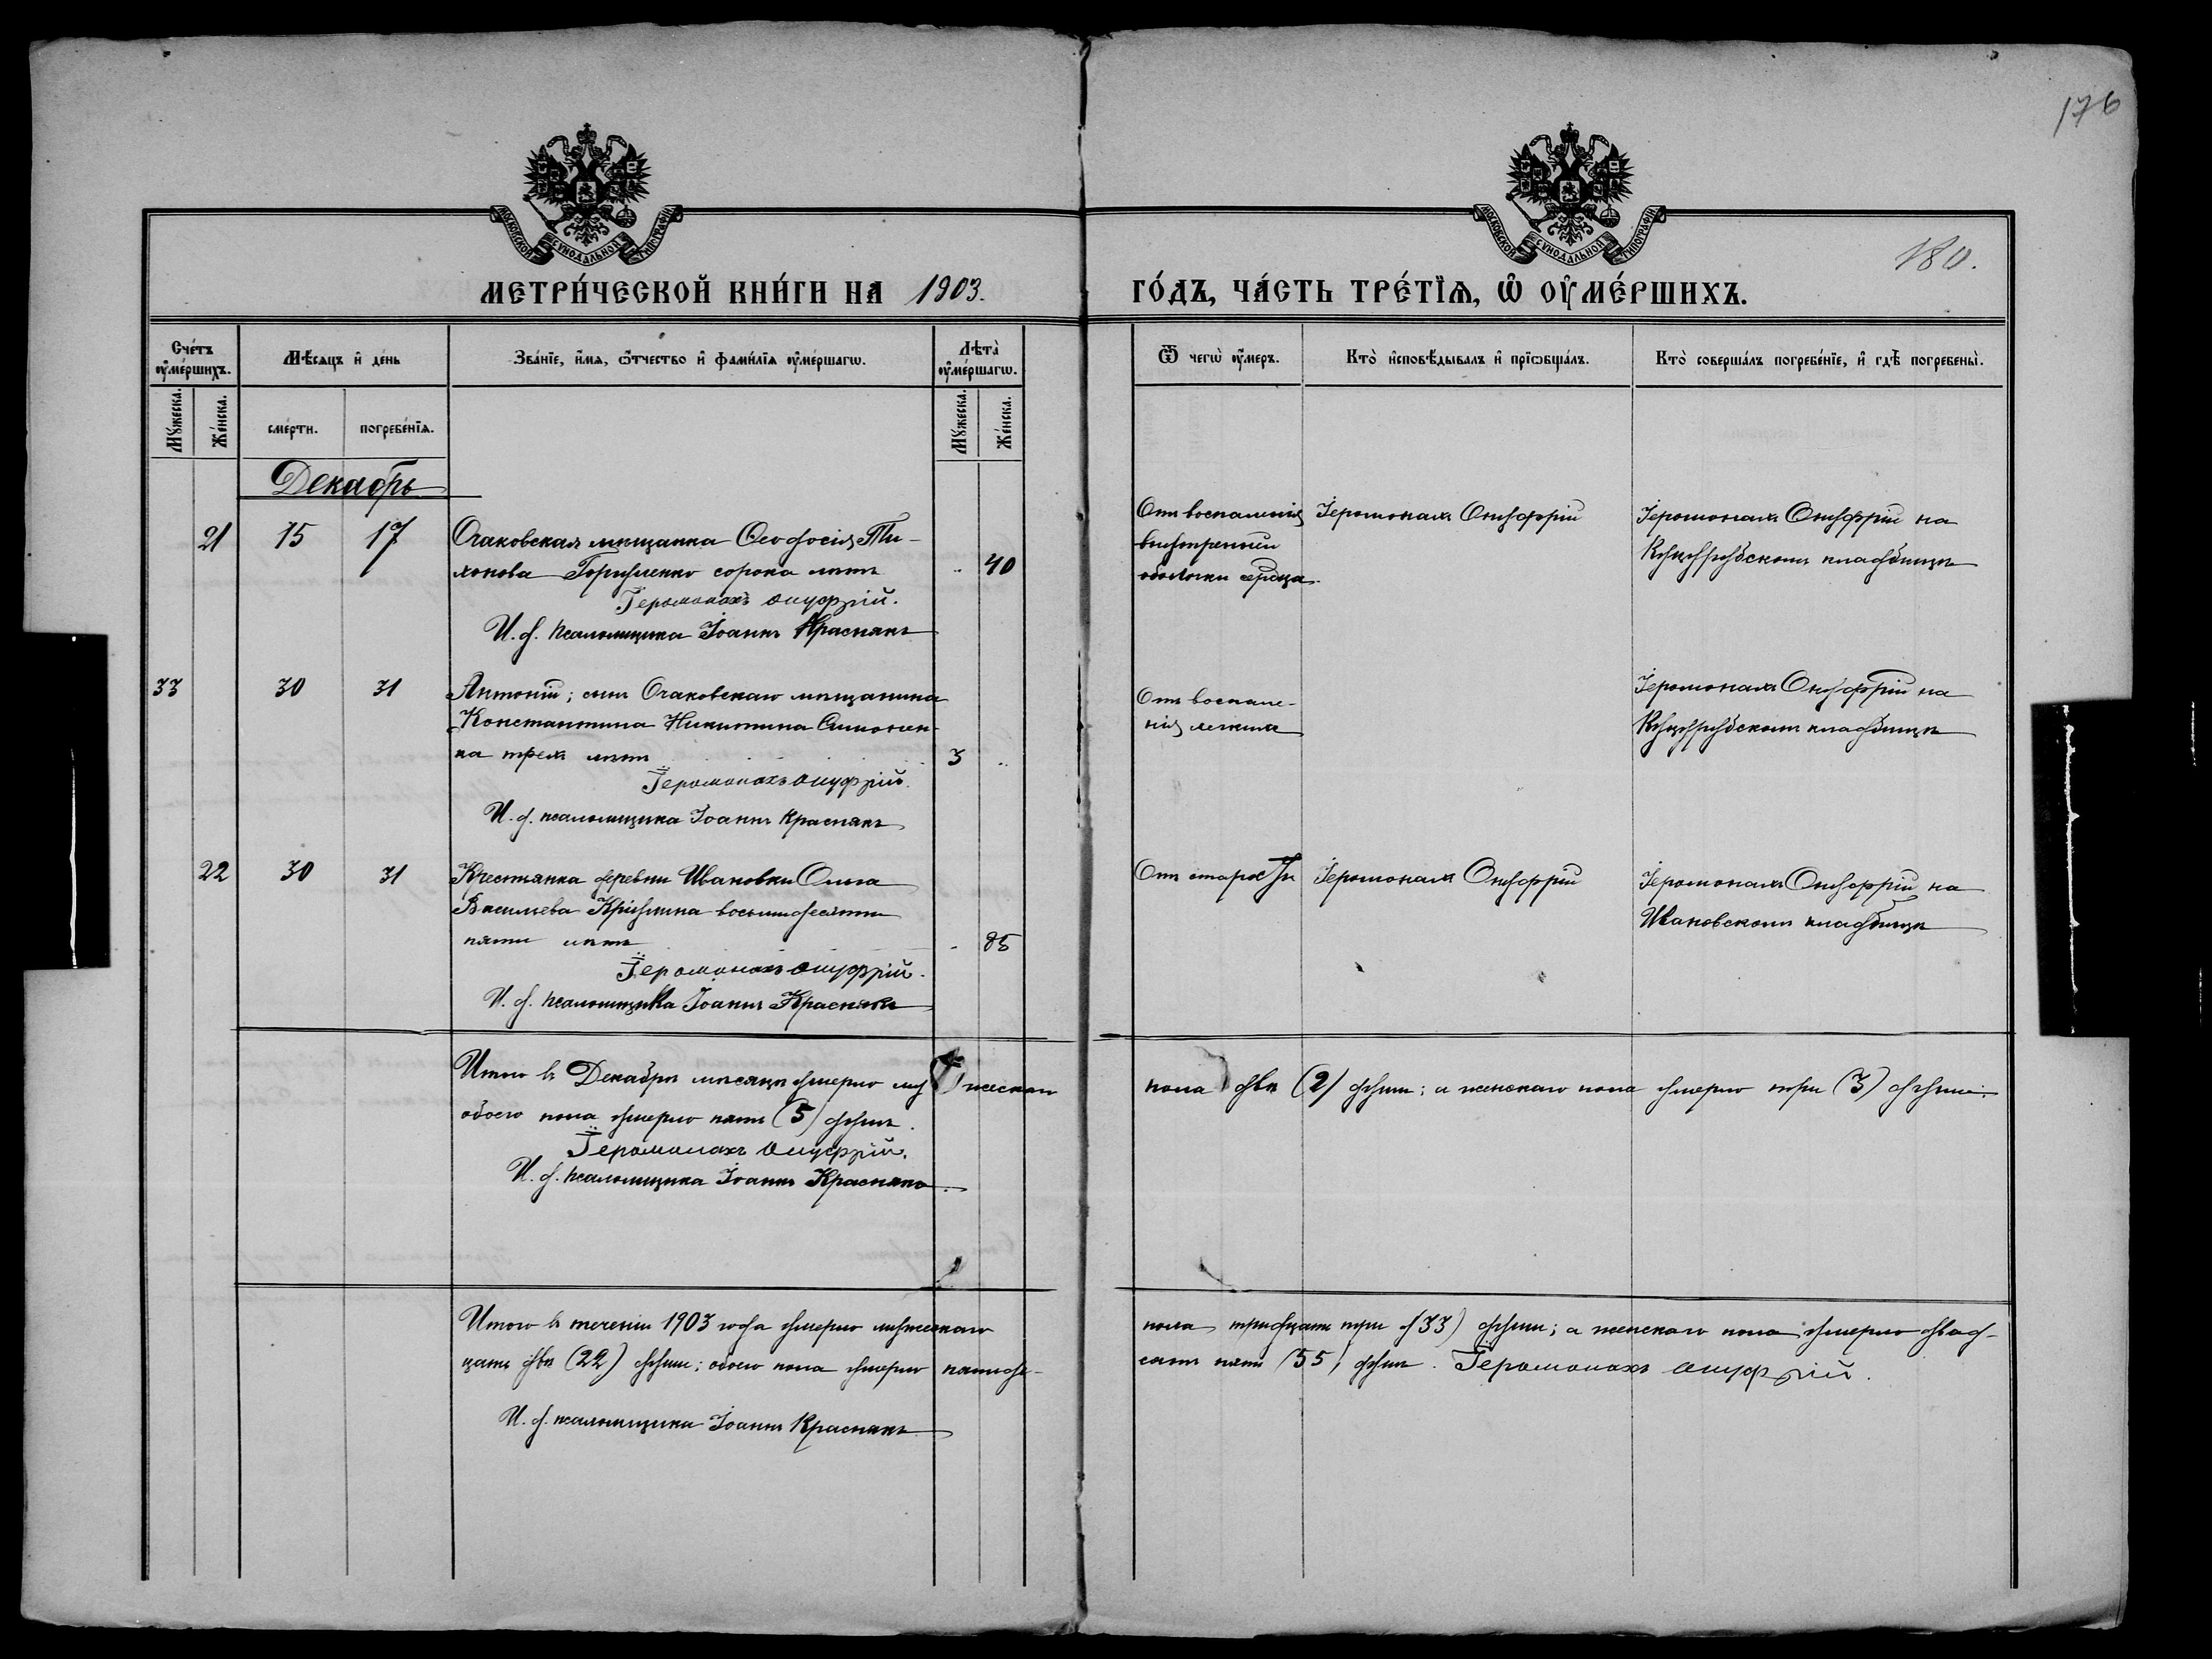 176
МОСКОВСКОЙ СѴНОДАЛЬНОЙ ТИПОГРАФІИ
МОСКОВСКОЙ СѴНОДАЛЬНОЙ ТИПОГРАФІИ
180.
МЕТРИ́ЧЕСКОЙ КНИ́ГИ НА 1903. ГО́ДЪ, ЧА́СТЬ ТРЕ́ТЇѦ, Ѡ҆ ОУ҆МЕ́РШИХЪ.
Сче́тъ оу҆ме́ршихъ.
Мѣ́сѧцъ и҆ де́нь
Зва́нїе, и҆́мѧ, ѻ҆́тчество и҆ фамѝлїѧ оу҆ме́ршагѡ.
Лѣ́та оу҆ме́ршагѡ.
Ѿ чегѡ̀ оу҆́меръ.
Кто̀ и҆сповѣ́дывалъ и҆ прїѡбща́лъ.
Кто̀ соверша́лъ погребе́нїе, и҆ гдѣ̀ погребены̀.
Мꙋ́жеска.
Же́нска.
сме́рти.
погребе́нїѧ.
Мꙋ́жеска.
Же́нска.
Декабрь
21 15 17 Очаковская мѣщанка Ѳеодосія Ти-
хонова Горшленко сорока лѣтъ 40
Іеромонахъ Онуфрій.
И. д. псаломщика Іоаннъ Краснякъ
Отъ воспаленія
внутренней
оболочки сердца.
Іеромонахъ Онуфрій
Іеромонахъ Онуфрій на
Куцурубскомъ кладбищѣ
33 30 31 Антоній; сынъ Очаковскаго мѣщанина
Константина Никитина Симонен-
ка трехъ лѣтъ 3
Іеромонахъ Онуфрій.
И. д. псаломщика Іоаннъ Краснякъ
Отъ воспале-
нія легкихъ
Іеромонахъ Онуфрій на
Куцурубскомъ кладбищѣ
22 30 31 Крестьянка деревни Ивановки Ольга
Васильева восьмидесяти
пяти лѣтъ 85
Іеромонахъ Онуфрій.
И. д. псаломщика Іоаннъ Краснякъ
Отъ старости
Іеромонахъ Онуфрій
Іеромонахъ Онуфрій на
Ивановскомъ кладбищѣ
Итого въ Декабрѣ мѣсяцѣ умерло мужескаго пола двѣ (2) души; а женскаго пола умерло три (3) души;
обоего пола умерло пять (5) душъ.
Іеромонахъ Онуфрій.
И. д. псаломщика Іоаннъ Краснякъ.
Итого въ теченіи 1903 года умерло мужескаго пола тридцать три (33) души; а женскаго пола умерло двад-
цать двѣ (22) души; обоего пола умерло пятьде-сятъ пять (55) душъ. Іеромонахъ Онуфрій.
И. д. псаломщика Іоаннъ Краснякъ